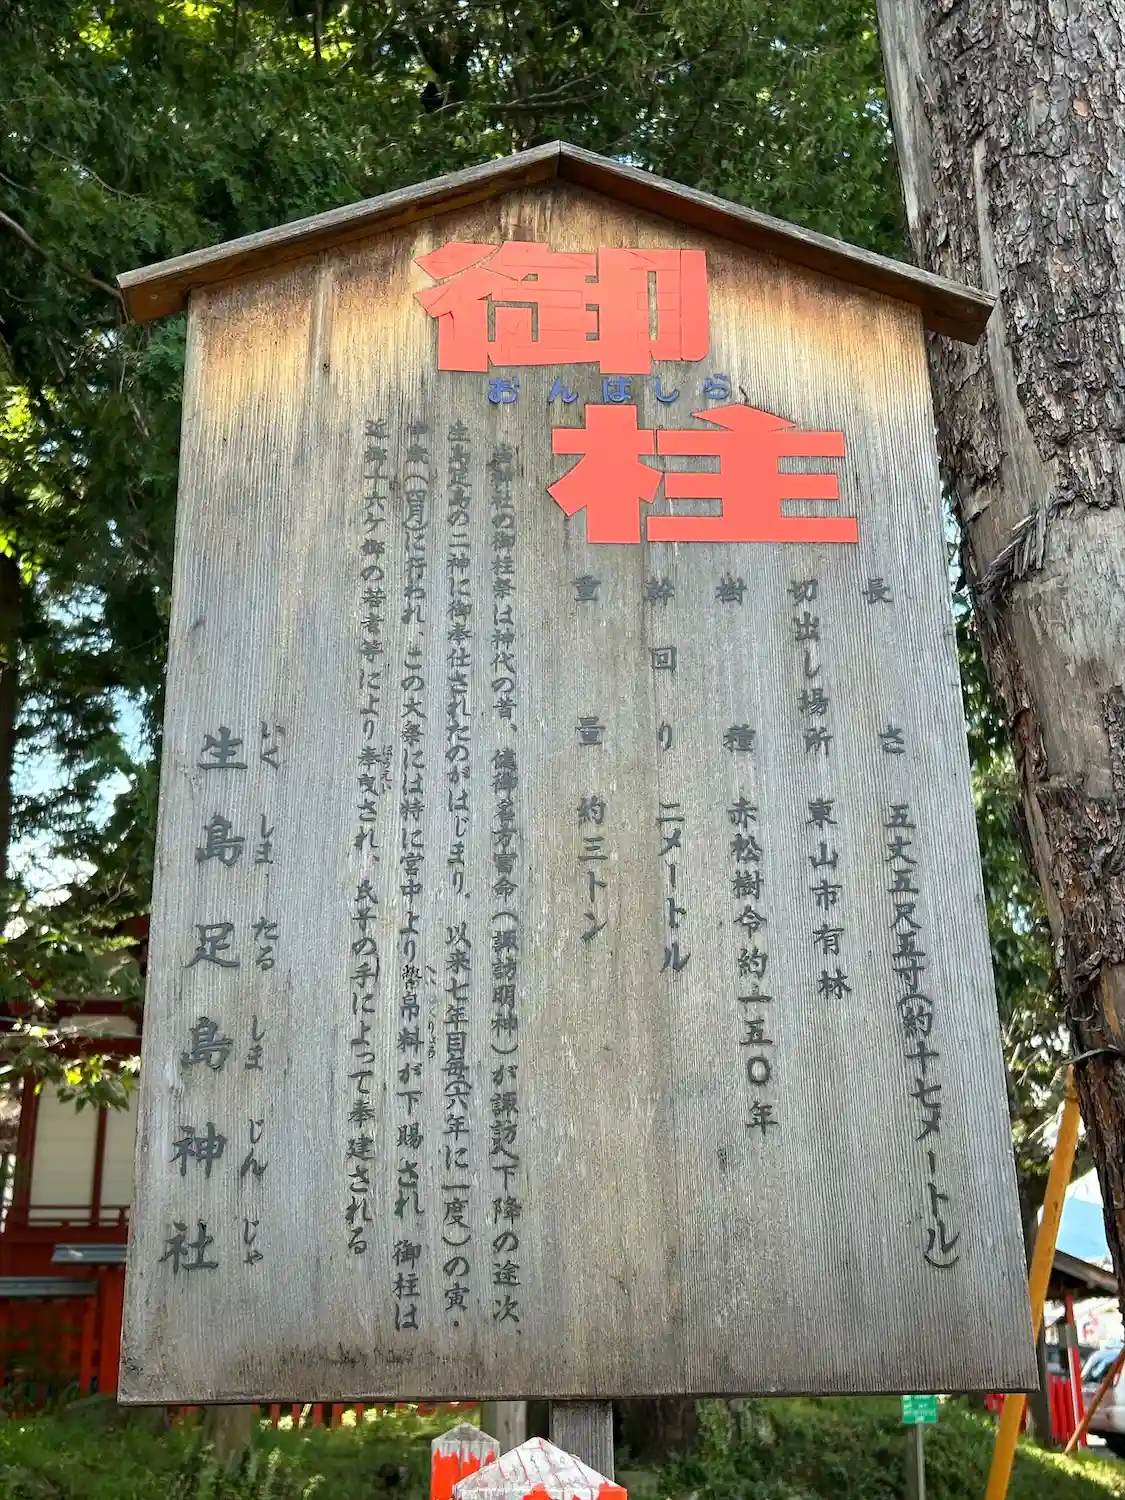 御
おんばしら
柱
長さ 五丈五尺五寸(約十七メートル)
切出し場所 東山市有林
樹種 赤松樹令約一五〇年
幹回り 二メートル
重量 約三トン
当神社の御柱祭は神代の昔、健御名方富命(諏訪明神)が諏訪へ下降の途次、
生島足島の二神に御奉仕されたのがはじまり、以来七年目毎(六年に一度)の寅・
申歳(四月)に行われ、この大祭には特に宮中より幣帛料が下賜され、御柱は
へいはくりょう
近郷十六ケ郷の若者等により奉曳され、氏子の手によって奉建される
ほうえい
いく しま たる しま じん じゃ
生島足島神社